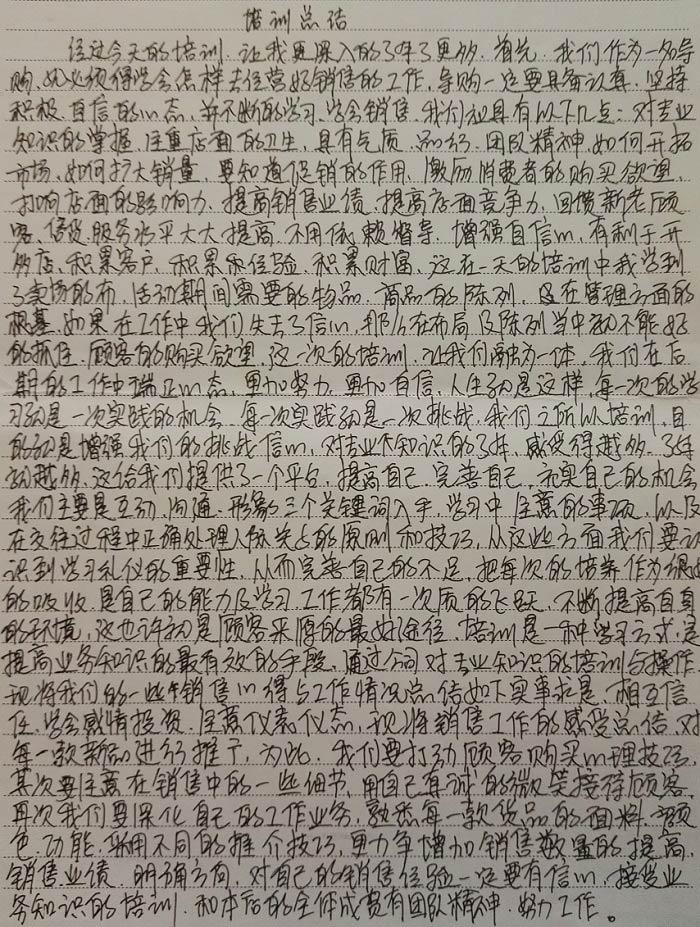 培训总结
经过今天的培训.让我更深入的了解了更多.首先.我们作为一名导
购.就必须得学会怎样去经营好销售的工作.导购一定要具备认真.坚持
积极.自信的心态.并不断的学习.学会销售.我们应具有以下几点:对专业
知识的掌握.注重店面的卫生.具有气质.品行.团队精神.如何开拓
市场.如何扩大销量.要知道促销的作用.激励消费者的购买欲望.
打响店面的影响力.提高销售业绩.提高店面竞争力.回馈新老顾
客.信货.服务水平大大提高.不用依赖督导.增强自信心.有利于开
多店.积累客户.积累和经验.积累财富.这在一天的培训中我学到
了卖场的布.活动期间需要的物品.商品的陈列.及在管理方面的
根基.如果在工作中我们失去了信心.那么在布局及陈列当中就不能好
的抓住.顾客的购买欲望.这一次的培训.让我们融为一体.我们在后
期的工作中端正心态.更加努力.更加自信.人生就是这样.每一次的学
习就是一次实践的机会.每一次实践就是一次挑战.我们之所以培训.目
的就是增强我们的挑战信心.对专业知识的了解.感受得越多.了解
就越多.这给我们提供了一个平台.提高自己.完善自己.充实自己的机会
我们主要是互动.沟通.形象三个关键词入手.学习中注意的事项.以及
在交往过程中正确处理人际关占的原则和技巧.从这些方面我们要认
识到学习礼仪的重要性.从而完善自己的不足.把每次的培养作为很好
的吸收.是自己的能力及学习工作都有一次质的飞跃.不断提高自身
的环境.这也许就是顾客来源的最好途径.培训是一种学习方式.是
提高业务知识的最有效的手段.通过公司对专业知识的培训与操作.
现将我们的一些销售心得与工作情况总结如下实事求是.相互信
任.学会感情投资.注意仪表仪态.现将销售工作的感受总结.对
每一款新品进行推广.为此.我们要打动顾客购买心理技巧.
其次要注意在销售中的一些细节.用自己真诚的微笑接待顾客.
再次我们要深化自己的工作业务.熟悉每一款货品的面料.颜
色.功能.采用不同的推介技巧.更力争增加销售数量的提高.
销售业绩.明确方向.对自己的销售经验一定要有信心.接受业
务知识的培训.和本店的全体成员有团队精神.努力工作。